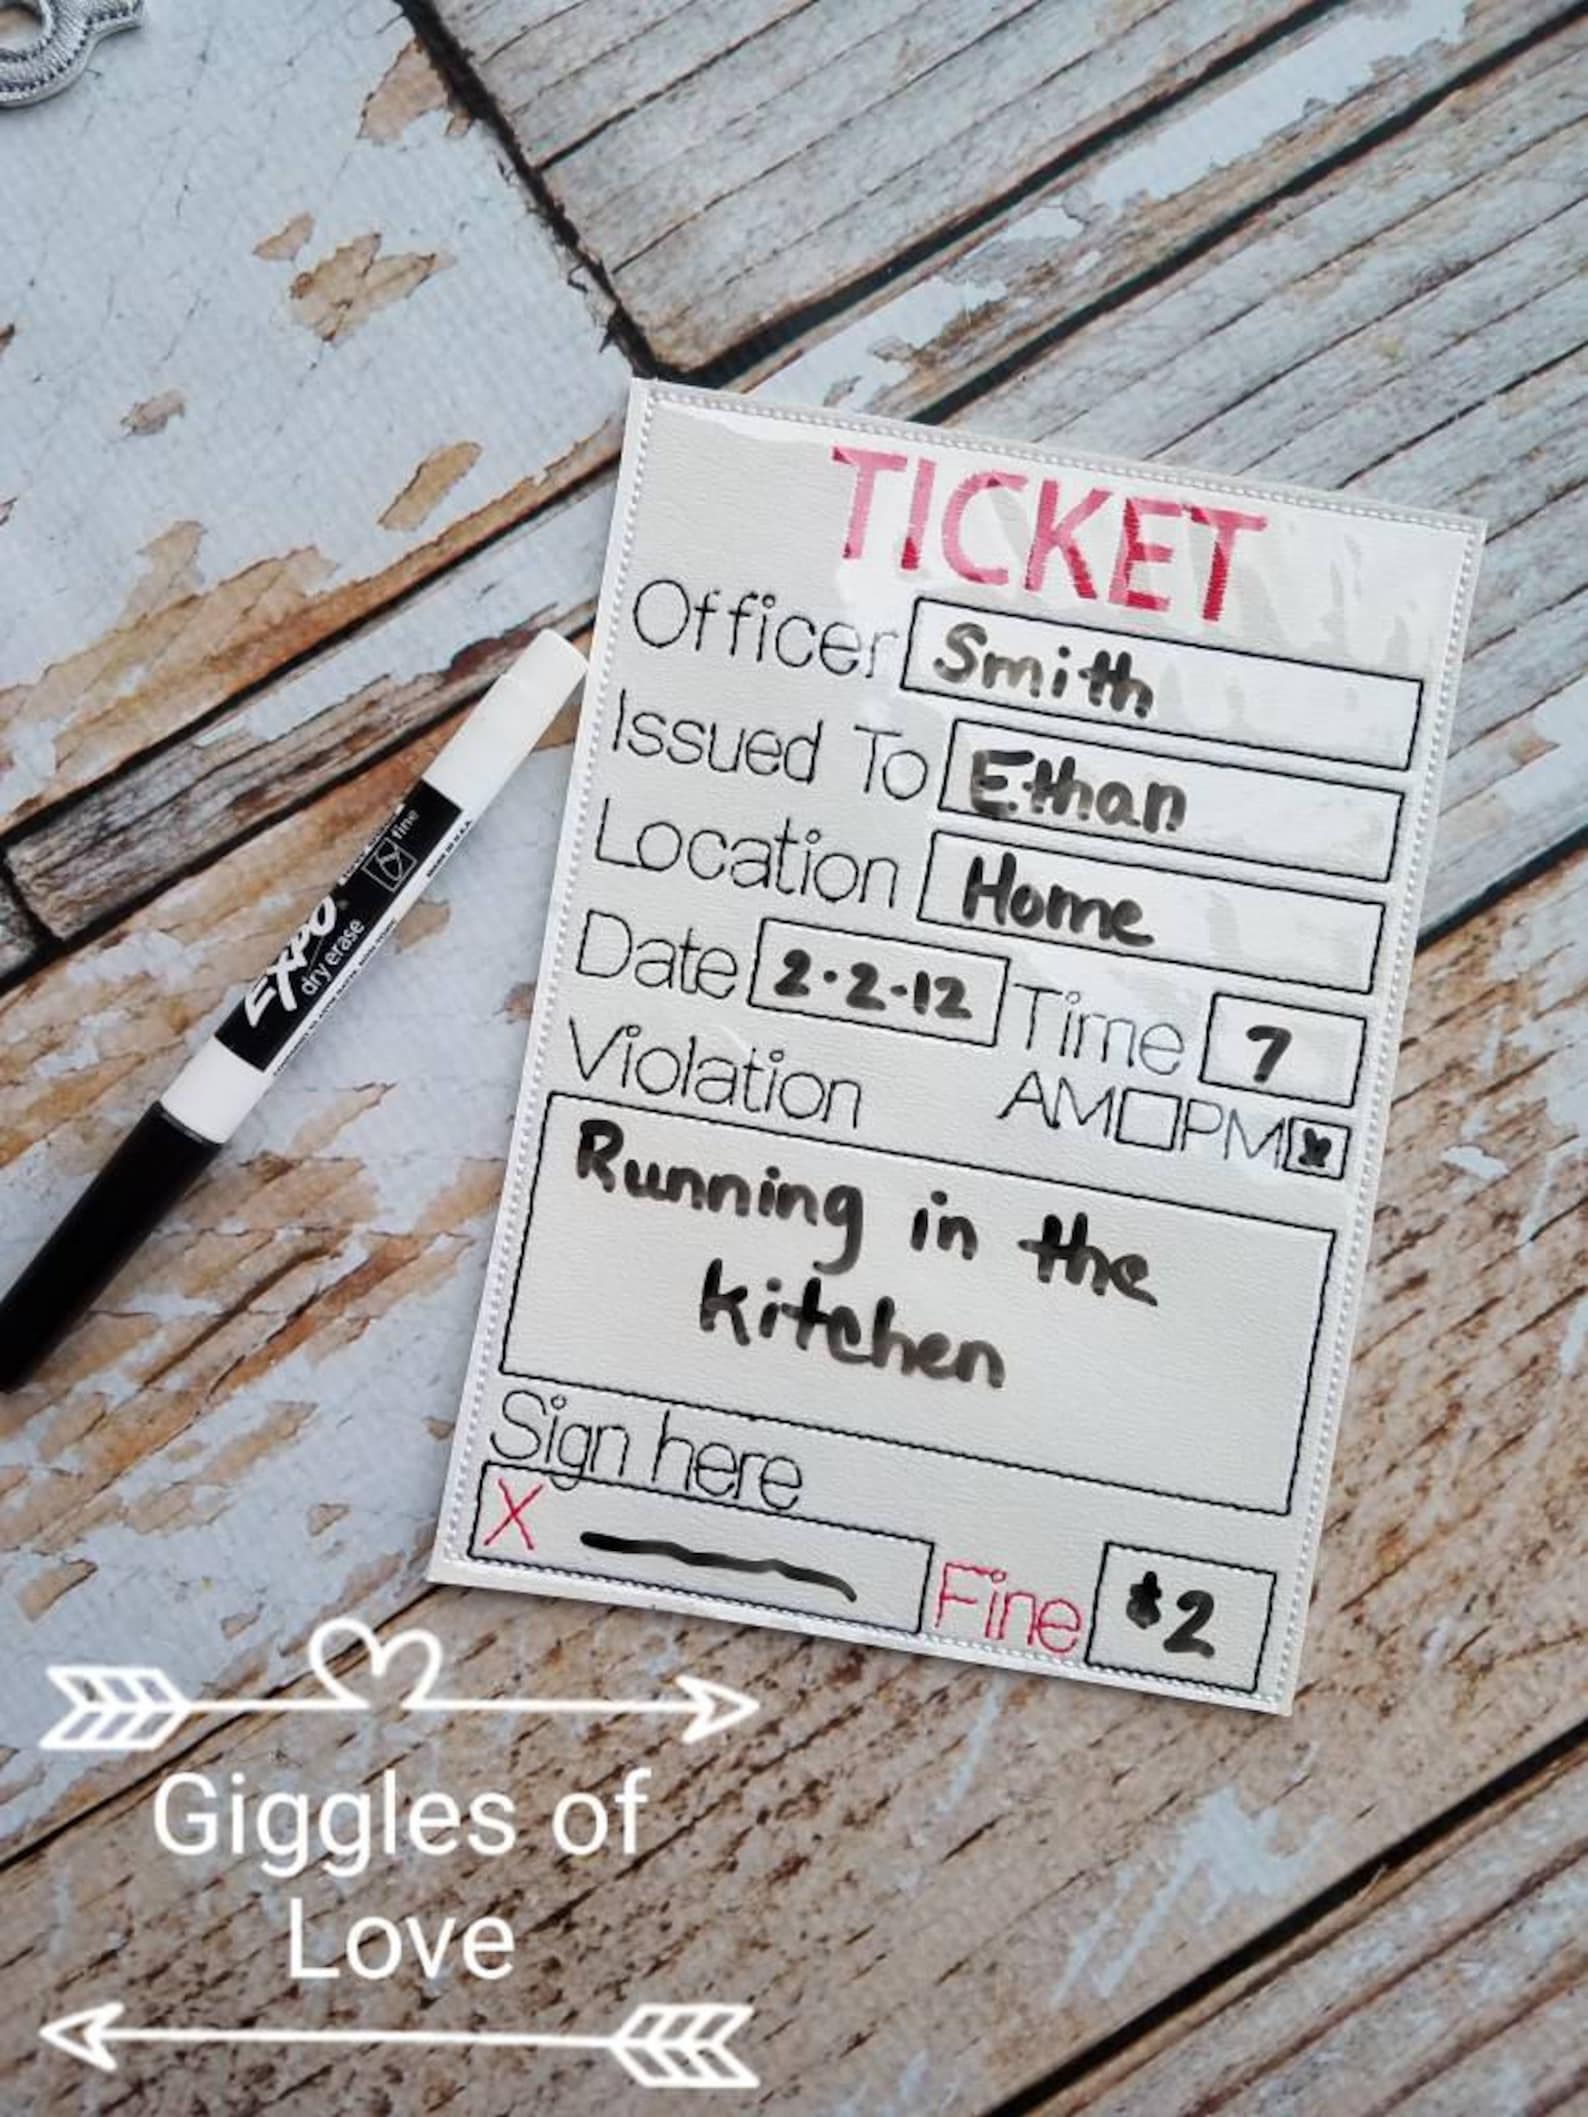 TICKET
Officer Smith
Issued To Ethan
Location Home
Date 2·2·12 Time 7
AM PM x
Violation
Running in the
kitchen
Sign here
X
Fine $2
EXPO
dry erase
fine
Giggles of
Love